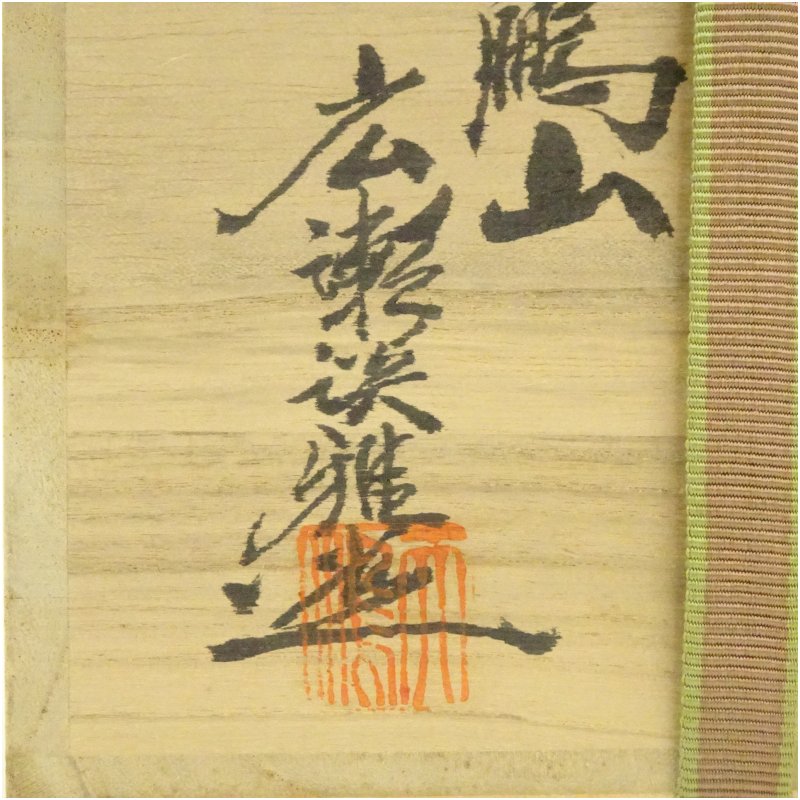 鵬山
広瀬淡雅造